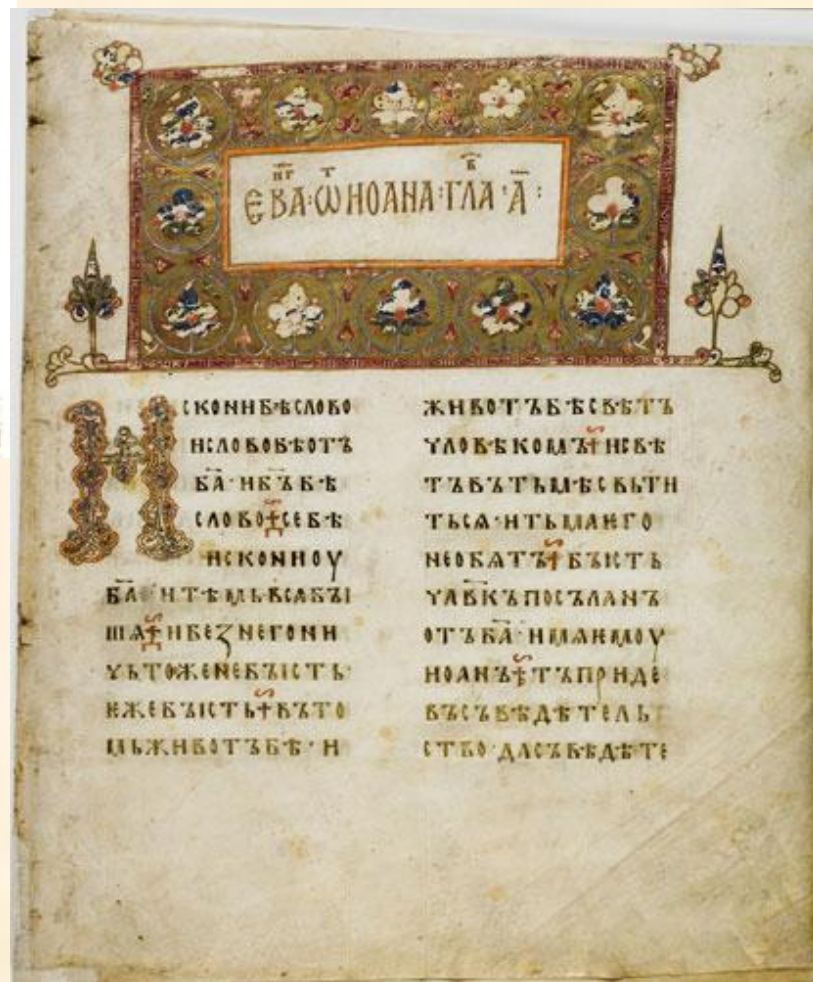 ЕВАⷩ҇ⷢ҇·Ѡⷮ҇ИОАНА·ГЛАⷡ҇·А҃:
ИСКОНИБѢСЛОВО
ИСЛОВОБѢОТЪ
БА҃·ИБЪ҃БѢ
СЛОВО⁜СЕБѢ
ИСКОНИОУ
БА҃·ИТѢМЬВСѦБꙐ
ШѦ⁜ИБЕЗНЕГОНИ
ЧЬТОЖЕНЕБꙐСТЬ·
ѤЖЕБꙐСТЬ⁜ВЪТО
МЬЖИВОТЪБѢ·И
ЖИВОТЪБѢСВѢТЪ
ЧЛОВѢКОМЪ⁜ИСВѢ
ТЪВЪТЬМѢСВЬТИ
ТЬСѦ·ИТЬМАѤГО
НЕОБѦТЪ⁜БꙐСТЬ
ЧЛ҃ВКЪПОСЪЛАНЪ
ОТЪБА҃·ИМѦѤМОУ
ИОАНЪ⁜ТЪПРИДЕ
ВЪСЪВѢДѢТЕЛЬ
СТВО·ДАСЪВѢДѢТЕ